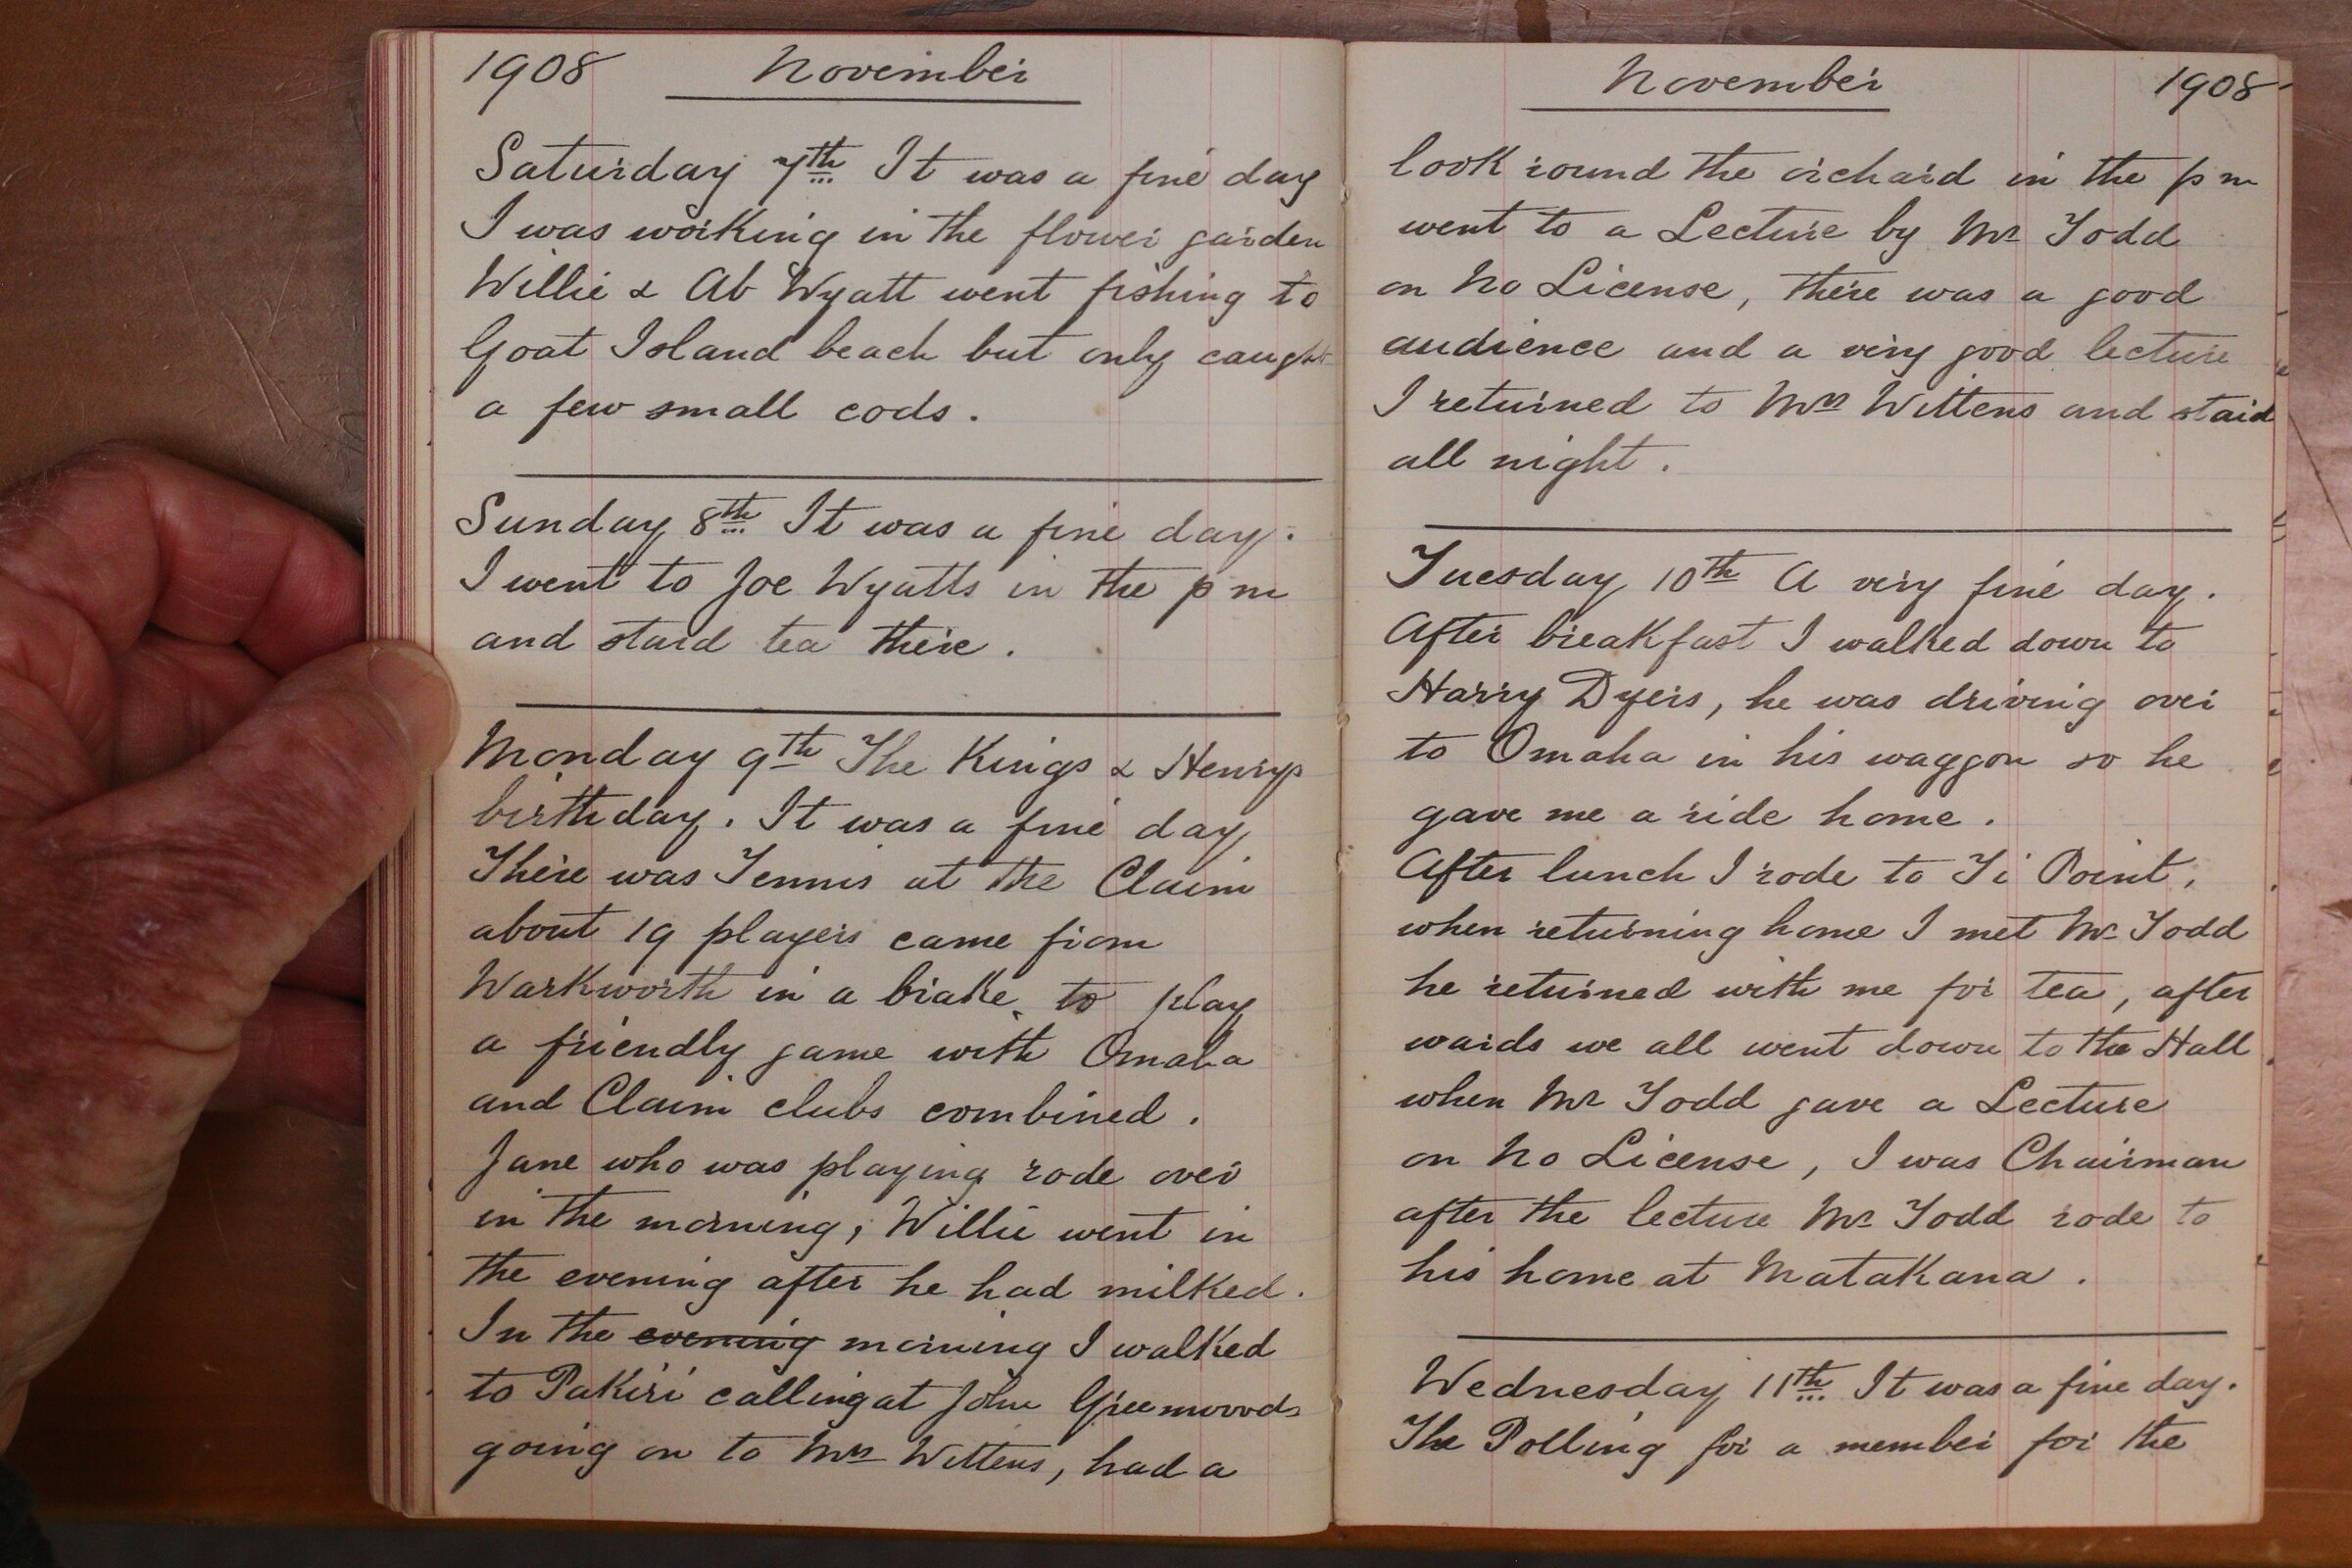 1908 November
Saturday 7th It was a fine day
I was working in the flower garden
Willie & Ab Wyatt went fishing to
Goat Island beach but only caught
a few small cods.
Sunday 8th It was a fine day.
I went to Joe Wyatts in the p m
and staid tea there.
Monday 9th The Kings & Henrys
birthday. It was a fine day
There was Tennis at the Claim
about 19 players came from
Warkworth in a brake, to play
a friendly game with Omaha
and Claim clubs combined.
Jane who was playing rode over
in the morning, Willie went in
the evening after he had milked.
In the evening morning I walked
to Pakiri calling at John Greenwoods
going on to Mrs Wittens, had a
November 1908
look round the orchard in the p m
went to a Lecture by Mr Todd
on No License, there was a good
audience and a very good lecture
I returned to Mrs Wittens and staid
all night.
Tuesday 10th A very fine day.
After breakfast I walked down to
Harry Dyers, he was driving over
to Omaha in his waggon so he
gave me a ride home.
After lunch I rode to Ti Point,
when returning home I met Mr Todd
he returned with me for tea, after
wards we all went down to the Hall
when Mr Todd gave a Lecture
on No License, I was Chairman
after the lecture Mr Todd rode to
his home at Matakana.
Wednesday 11th It was a fine day.
The Polling for a member for the